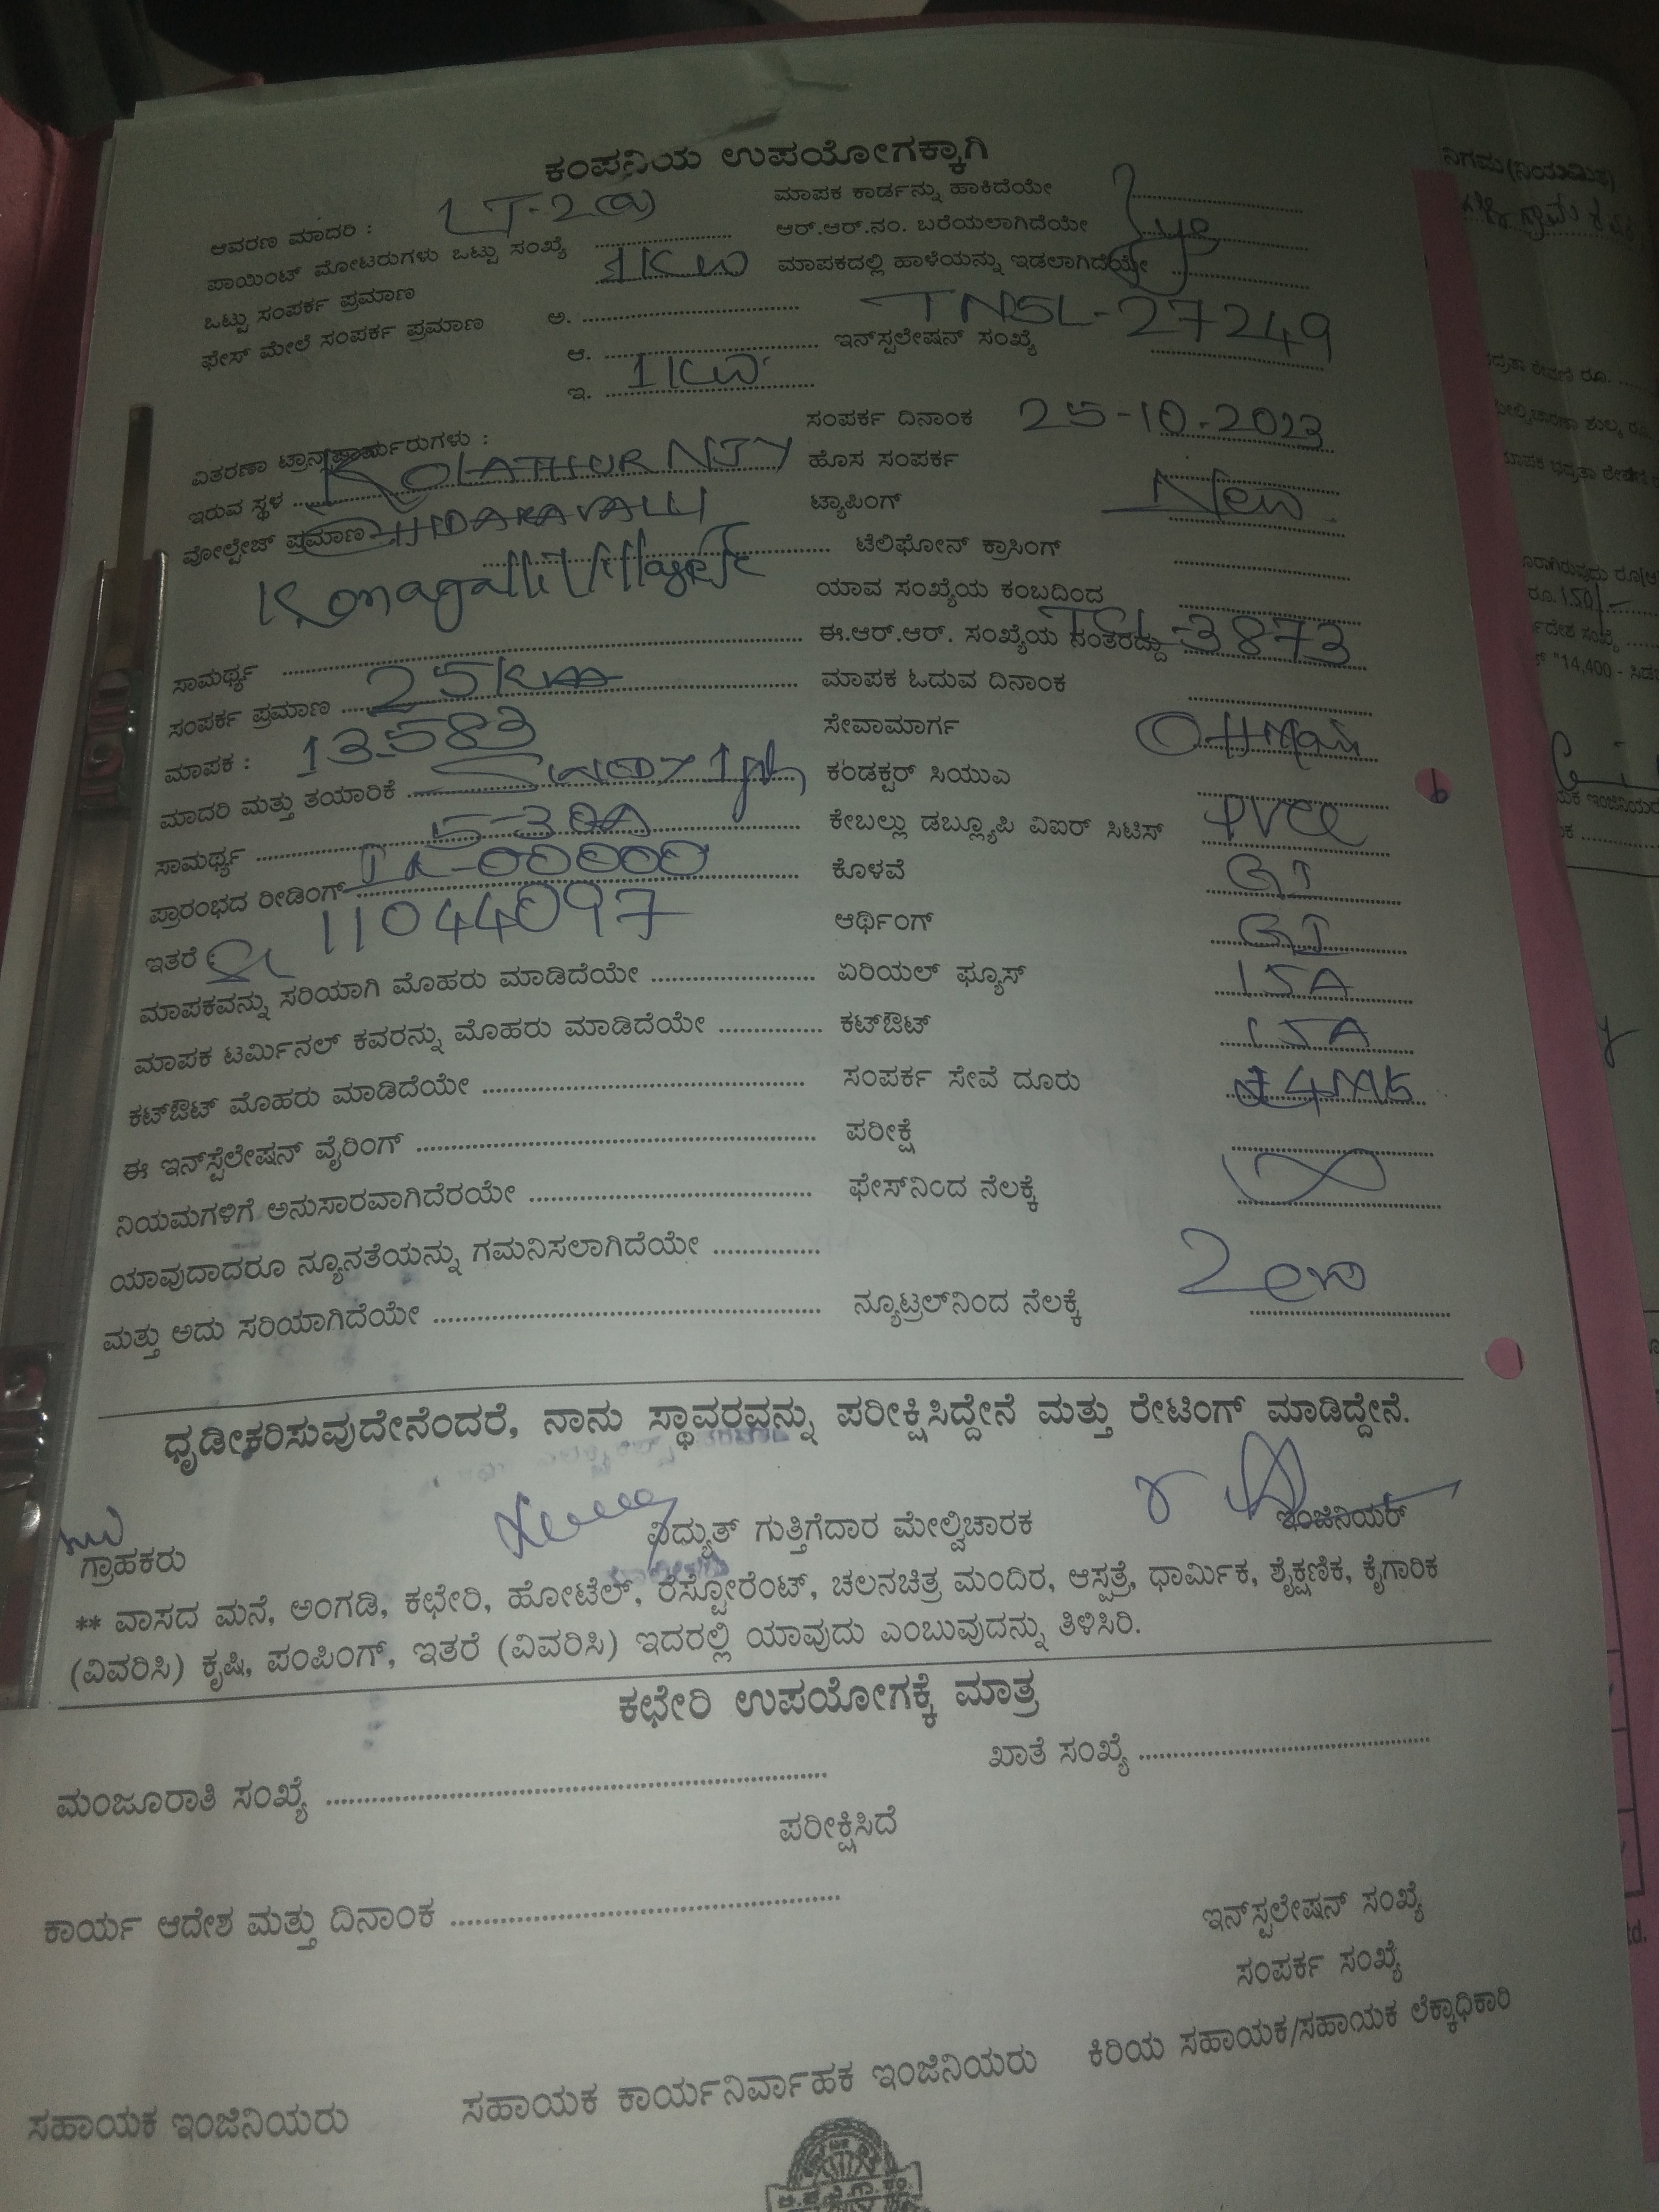 ಕಂಪನಿಯ ಉಪಯೋಗಕ್ಕಾಗಿ
ಆವರಣ ಮಾದರಿ : LT-2(a)
ಪಾಯಿಂಟ್ ಮೋಟರುಗಳು ಒಟ್ಟು ಸಂಖ್ಯೆ
ಒಟ್ಟು ಸಂಪರ್ಕ ಪ್ರಮಾಣ 1KW
ಫೇಸ್ ಮೇಲೆ ಸಂಪರ್ಕ ಪ್ರಮಾಣ ಅ.
ಆ.
ಇ. 1KW
ವಿತರಣಾ ಟ್ರಾನ್ಸ್‌ಫಾರ್ಮರುಗಳು :
ಇರುವ ಸ್ಥಳ KOLATHUR NJY
ವೋಲ್ಟೇಜ್ ಪ್ರಮಾಣ CHIDARAVALLI
Konagalli Village
ಸಾಮರ್ಥ್ಯ
ಸಂಪರ್ಕ ಪ್ರಮಾಣ 25
ಮಾಪಕ : 13583
ಮಾದರಿ ಮತ್ತು ತಯಾರಿಕೆ 1ph
ಸಾಮರ್ಥ್ಯ 5-30A
ಪ್ರಾರಂಭದ ರೀಡಿಂಗ್ IR-00000
ಇತರೆ SL 11044097
ಮಾಪಕವನ್ನು ಸರಿಯಾಗಿ ಮೊಹರು ಮಾಡಿದೆಯೇ
ಮಾಪಕ ಟರ್ಮಿನಲ್ ಕವರನ್ನು ಮೊಹರು ಮಾಡಿದೆಯೇ
ಕಟ್‌ಔಟ್ ಮೊಹರು ಮಾಡಿದೆಯೇ
ಈ ಇನ್‌ಸ್ಟೆಲೇಷನ್ ವೈರಿಂಗ್
ನಿಯಮಗಳಿಗೆ ಅನುಸಾರವಾಗಿದೆರಯೇ
ಯಾವುದಾದರೂ ನ್ಯೂನತೆಯನ್ನು ಗಮನಿಸಲಾಗಿದೆಯೇ
ಮತ್ತು ಅದು ಸರಿಯಾಗಿದೆಯೇ
ಮಾಪಕ ಕಾರ್ಡನ್ನು ಹಾಕಿದೆಯೇ
ಆರ್.ಆರ್.ನಂ. ಬರೆಯಲಾಗಿದೆಯೇ
ಮಾಪಕದಲ್ಲಿ ಹಾಳೆಯನ್ನು ಇಡಲಾಗಿದೆಯೇ
TNSL-27249
ಇನ್‌ಸ್ಟಲೇಷನ್ ಸಂಖ್ಯೆ
ಸಂಪರ್ಕ ದಿನಾಂಕ 25-10-2023
ಹೊಸ ಸಂಪರ್ಕ
ಟ್ಯಾಪಿಂಗ್ New
ಟೆಲಿಫೋನ್ ಕ್ರಾಸಿಂಗ್
ಯಾವ ಸಂಖ್ಯೆಯ ಕಂಬದಿಂದ
ಈ.ಆರ್.ಆರ್. ಸಂಖ್ಯೆಯ ನಂತರದ್ದು 3873
ಮಾಪಕ ಓದುವ ದಿನಾಂಕ
ಸೇವಾಮಾರ್ಗ OH Main
ಕಂಡಕ್ಟರ್ ಸಿಯುಎ
ಕೇಬಲ್ಲು ಡಬ್ಲ್ಯೂಪಿ ವಿಐರ್ ಸಿಟಿಸ್ PVC
ಕೊಳವೆ GI
ಆರ್ಥಿಂಗ್ GI
ಏರಿಯಲ್ ಫ್ಯೂಸ್ 15A
ಕಟ್‌ಔಟ್ 15A
ಸಂಪರ್ಕ ಸೇವೆ ದೂರು
ಪರೀಕ್ಷೆ
ಫೇಸ್‌ನಿಂದ ನೆಲಕ್ಕೆ ∞
ನ್ಯೂಟ್ರಲ್‌ನಿಂದ ನೆಲಕ್ಕೆ Zero
ಧೃಡೀಕರಿಸುವುದೇನೆಂದರೆ, ನಾನು ಸ್ಥಾವರವನ್ನು ಪರೀಕ್ಷಿಸಿದ್ದೇನೆ ಮತ್ತು ರೇಟಿಂಗ್ ಮಾಡಿದ್ದೇನೆ.
ಗ್ರಾಹಕರು ವಿದ್ಯುತ್ ಗುತ್ತಿಗೆದಾರ ಮೇಲ್ವಿಚಾರಕ ಇಂಜಿನಿಯರ್
** ವಾಸದ ಮನೆ, ಅಂಗಡಿ, ಕಛೇರಿ, ಹೋಟೆಲ್, ರೆಸ್ಟೋರೆಂಟ್, ಚಲನಚಿತ್ರ ಮಂದಿರ, ಆಸ್ಪತ್ರೆ, ಧಾರ್ಮಿಕ, ಶೈಕ್ಷಣಿಕ, ಕೈಗಾರಿಕ
(ವಿವರಿಸಿ) ಕೃಷಿ, ಪಂಪಿಂಗ್, ಇತರೆ (ವಿವರಿಸಿ) ಇದರಲ್ಲಿ ಯಾವುದು ಎಂಬುವುದನ್ನು ತಿಳಿಸಿರಿ.
ಕಛೇರಿ ಉಪಯೋಗಕ್ಕೆ ಮಾತ್ರ
ಮಂಜೂರಾತಿ ಸಂಖ್ಯೆ ಖಾತೆ ಸಂಖ್ಯೆ
ಪರೀಕ್ಷಿಸಿದೆ
ಕಾರ್ಯ ಆದೇಶ ಮತ್ತು ದಿನಾಂಕ
ಇನ್‌ಸ್ಟಲೇಷನ್ ಸಂಖ್ಯೆ
ಸಂಪರ್ಕ ಸಂಖ್ಯೆ
ಸಹಾಯಕ ಇಂಜಿನಿಯರು ಸಹಾಯಕ ಕಾರ್ಯನಿರ್ವಾಹಕ ಇಂಜಿನಿಯರು ಕಿರಿಯ ಸಹಾಯಕ/ಸಹಾಯಕ ಲೆಕ್ಕಾಧಿಕಾರಿ